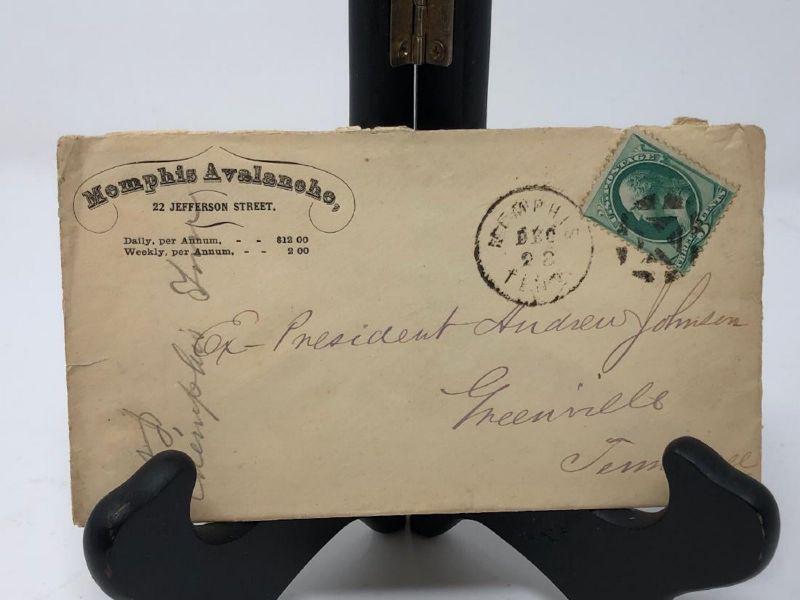 Memphis Avalanche,
22 JEFFERSON STREET.
Daily, per Annum, - - $12 00
Weekly, per Annum, - - 2 00
MEMPHIS
DEC
22
TENN.
POSTAGE
Ex-President Andrew Johnson
Greenville
Memphis